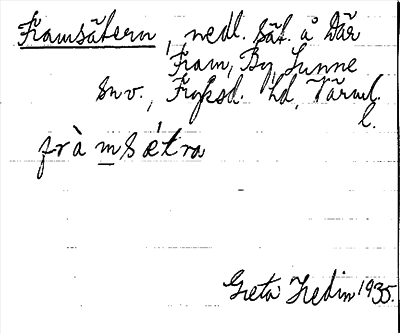 Framsätern, nedl. sät. å Där
Fram, By, Sunne
sn v., Fryksd. hd, Värml.
l.
frà msétra
Greta Hedin 1935.